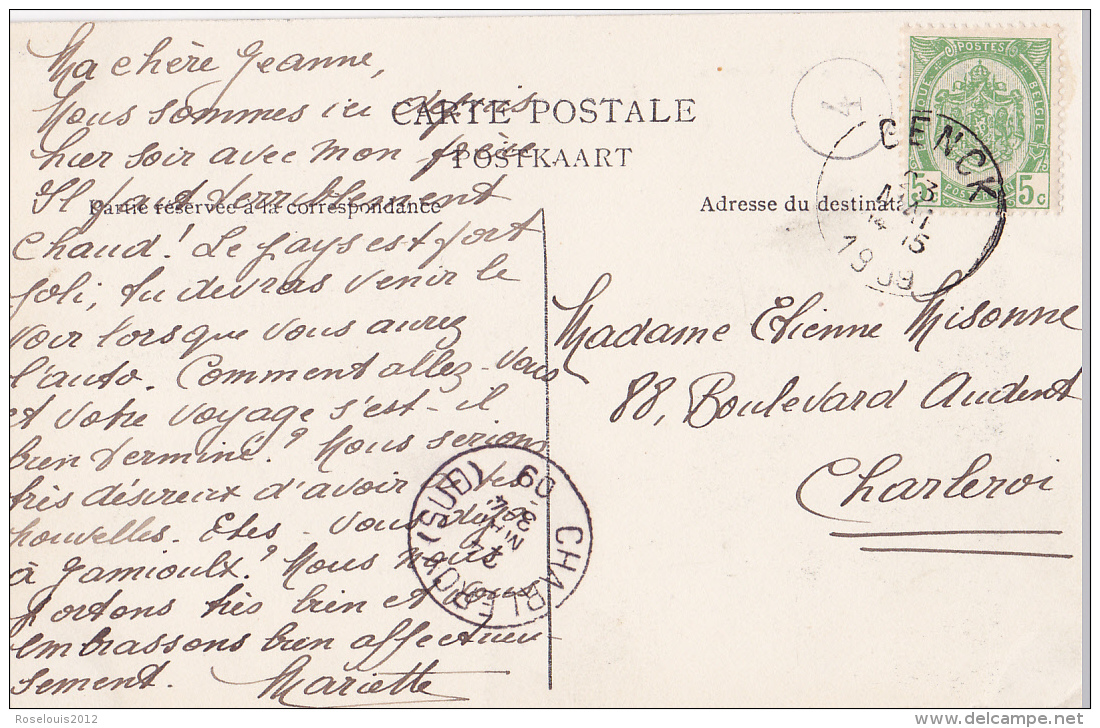 Ma chère Jeanne,
Nous sommes ici depuis
hier soir avec mon frère
Il faut terriblement
chaud! Le pays est fort
joli, tu devras venir le
voir lorsque vous aurez
l'auto. Comment allez-vous
et votre voyage s'est-il
bien terminé? Nous serions
très désireux d'avoir des
nouvelles. Etes-vous déjà
à Jamioulx? Nous nous
portons très bien et vous
embrassons bien affectueu
sement. Mariette
CARTE POSTALE
POSTKAART
Partie réservée à la correspondance
Adresse du destinata
POSTES
BELGIE
5 5c
GENCK
23
MAI
14-15
1909
4
Madame Etienne Misonne
88, Boulevard Audent
Charleroi
CHARLEROI (SUD)
09
Roselouis2012
www.delcampe.net